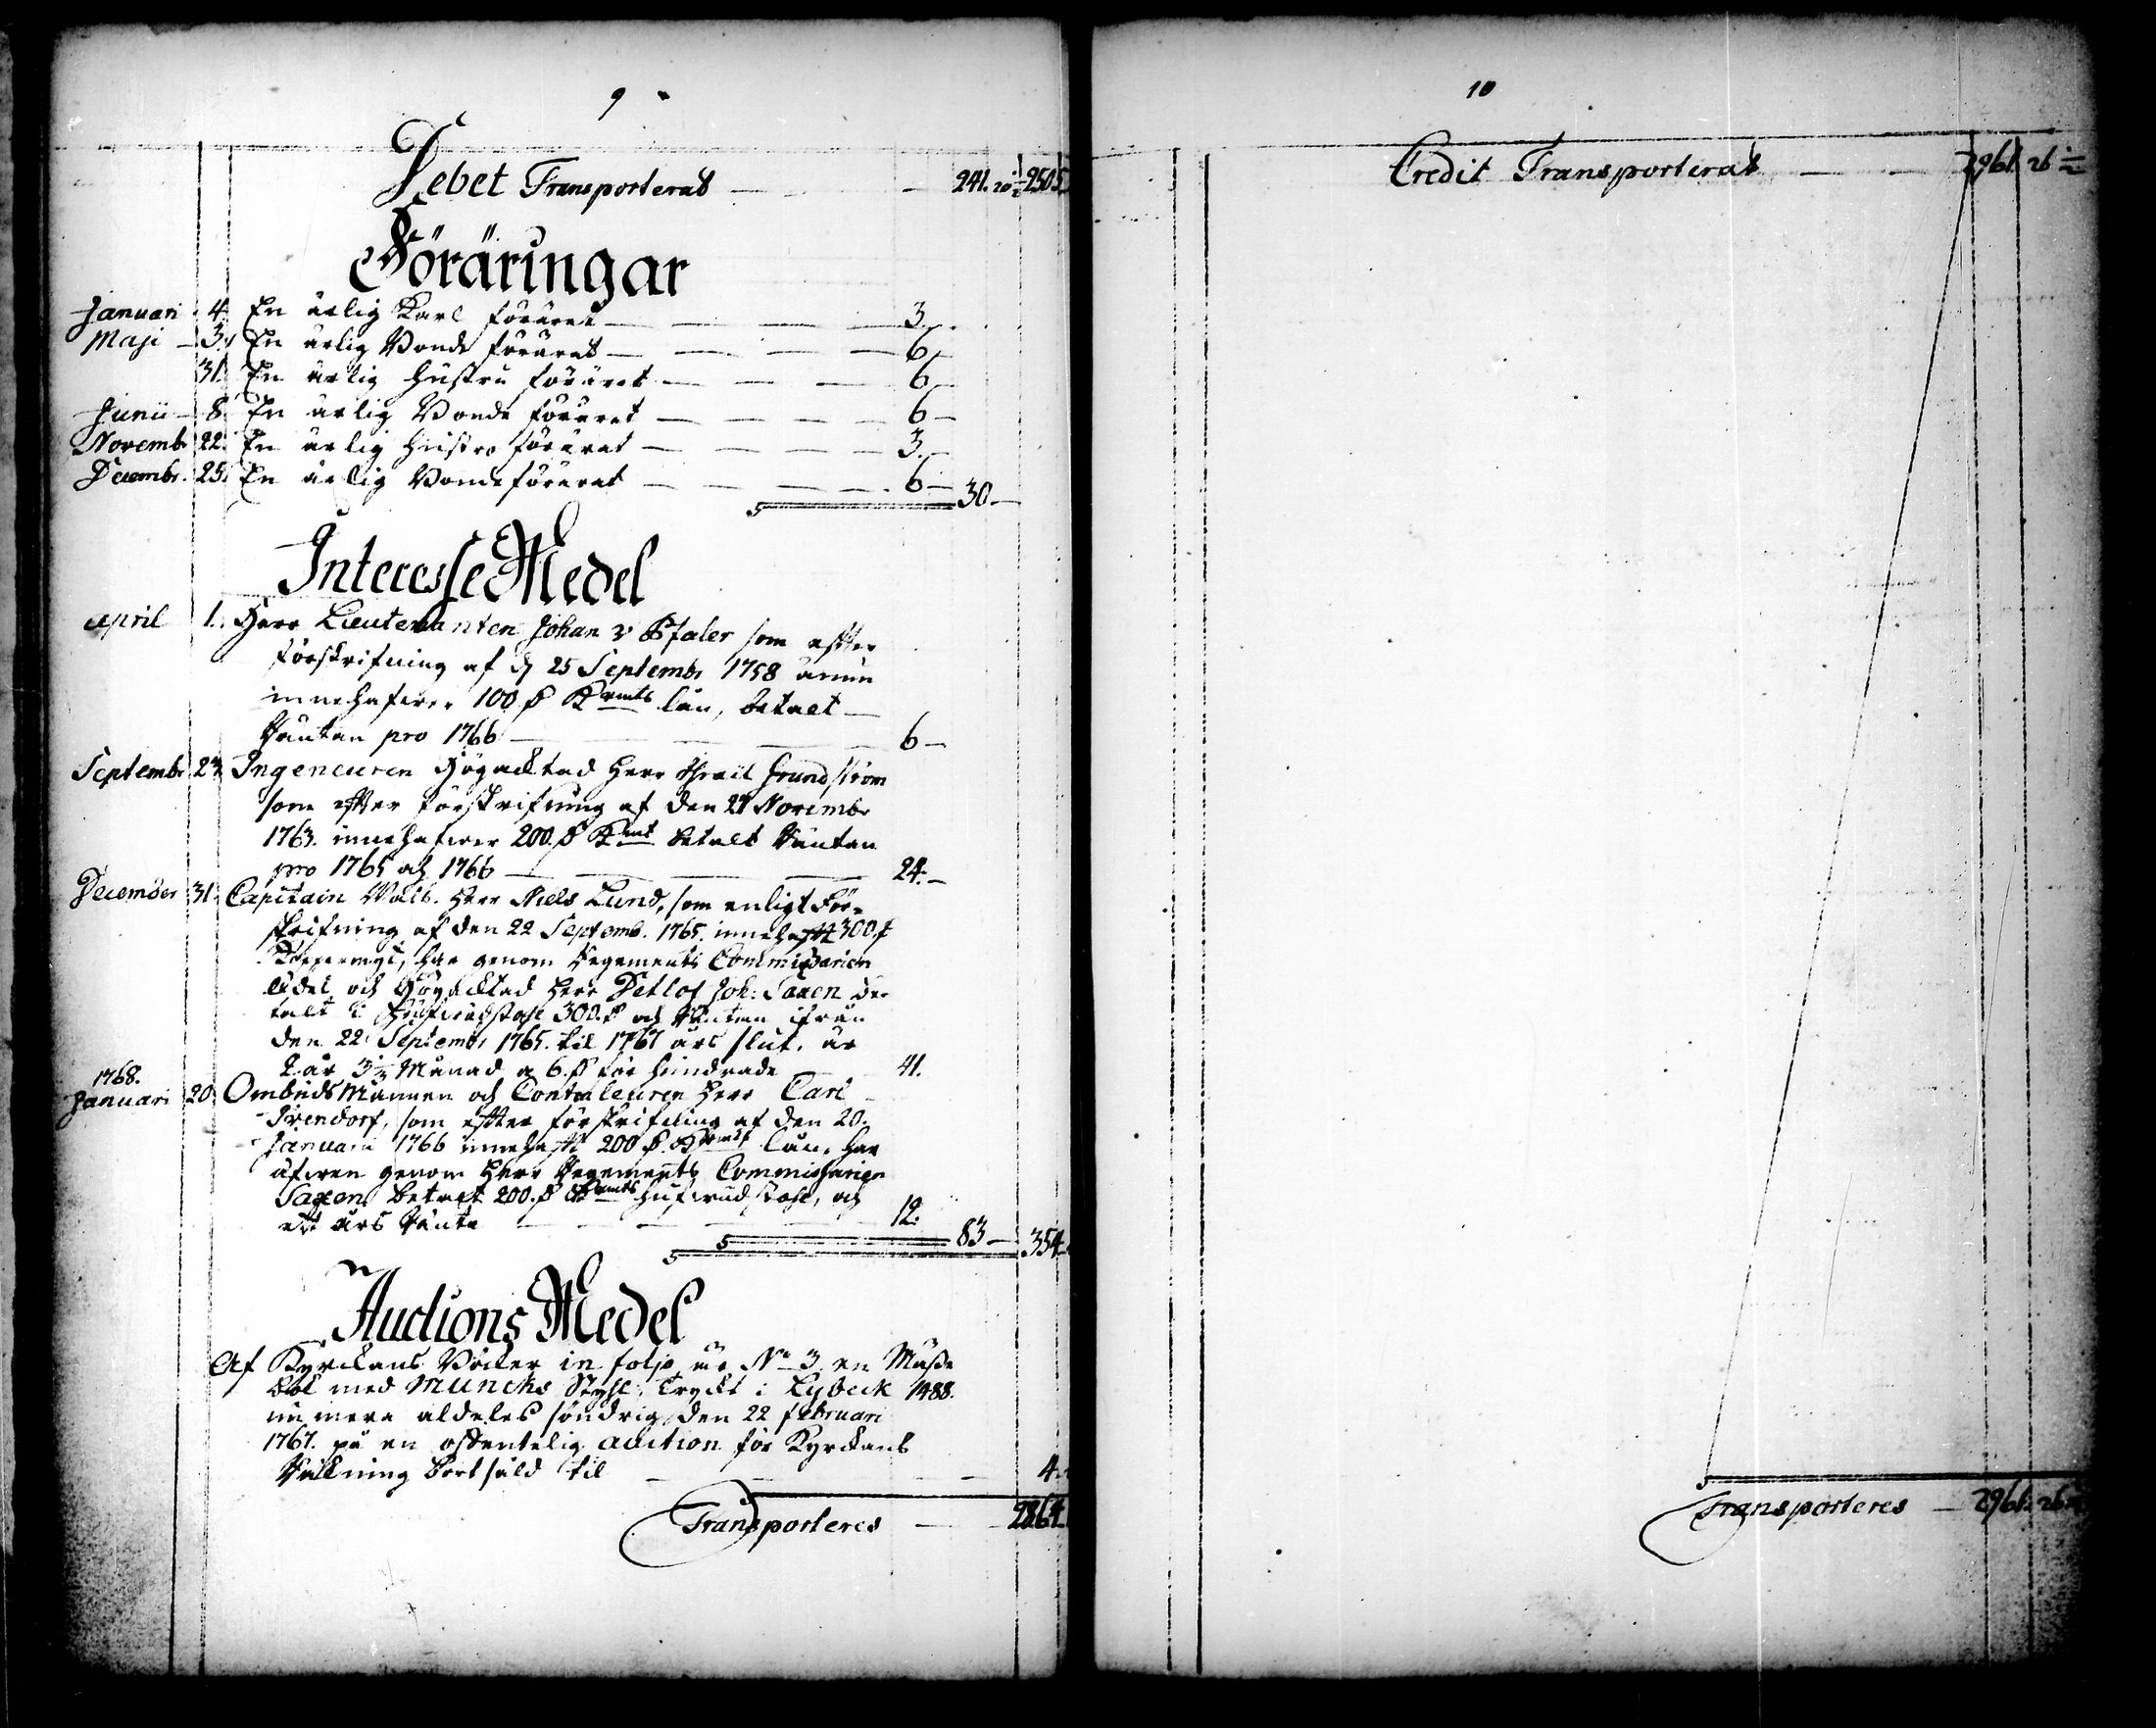 9
Debet Transporterat — — 241. 20 1/2 2505
Föräringar
Januari 4. En ärlig Karl förärat — — — — 3. —
Maji — 3. En ärlig Bonde förärat — — — — 6 —
31. En ärlig Hustru förärat — — — 6 —
Junii — 8. En ärlig Bonde förärat — — — — 6 —
Novemb. 22. En ärlig Hustro förärat — — — — 3. —
Decembr. 25. En ärlig Bonde förärat — — — — 6 — 30 —
Interesse Medel
April 1. Herr Lieutenanten Johan v Pfaler som efter
förskrifning af d. 25 Septembr 1758 ännu
innehafver 100 D Kmts lån, betalt —
Räntan pro 1766 — — — 6 —
Septembr 27 Ingeneuren Högacktad Herr Grundström
som efter förskrifning af den 27 Novembr
1763. innehafver 200. D Kmt betalt Räntan
pro 1765 och 1766 — — — 24. —
December 31. Capitain Herr Niels Lund, som enligt För=
skrifning af den 22 Septemb. 1765. innehaft 300. D
Koppermynt, har genom Regements Commissarien
Ädel och Högacktad Herr Detlof Joh: Saxen be-
talt i Hufvudstohl 300. D och Räntan ifrån
den 22 Septembr 1765. til 1767 års slut, är
2. år 3 1/3 Månad a 6. D för hundrade — 41.
1768.
Januari 20. Ombuds Mannen och Contraleuren Herr Carl
som efter förskrifning af den 20.
Januarii 1766 innehaft 200 D. Kmts lån, har
äfwen genom Herr Regements Commissarien
Saxen betalt 200. D Kmts hufvudstohl, och
ett års Ränta — — — 12.
83 — 354
Auctions Medel
Af Kyrckans Böcker in folio är No 3 en Mässe
bok med Muncks Styhl Tryckt i Lybeck 1488.
nu mera aldeles söndrig, den 22 Februari
1767. på en offentelig auction för Kyrckans
Räkning bortsåld til — — — 4.
Transporteres — — 2864
10
Credit Transporterat — — 2961. 26 1/2
Transporteres — 2961. 26